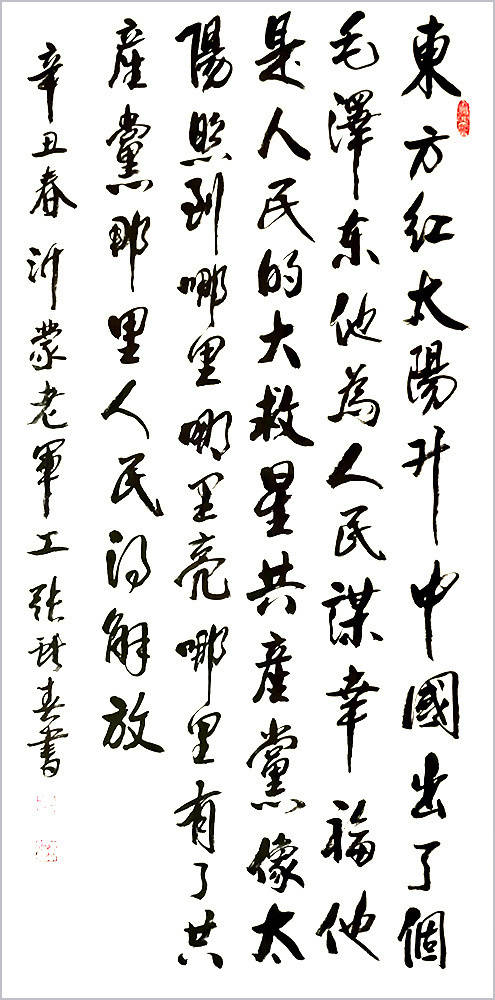 東方红太陽升中國出了個
毛澤东他為人民謀幸福他
是人民的大救星共產黨像太
陽照到哪里哪里亮哪里有了共
產黨那里人民得解放
辛丑春沂蒙老軍工张春書